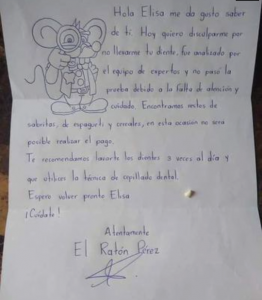 Hola Elisa me da gusto saber
de ti. Hoy quiero disculparme por
no llevarme tu diente, fue analizado por
el equipo de expertos y no pasó la
prueba debido a la falta de atención y
cuidado. Encontramos restos de
sabritas, de espagueti y cereales, en esta ocasión no será
posible realizar el pago.
Te recomendamos lavarte los dientes 3 veces al día y
que utilices la técnica de cepillado dental.
Espero volver pronto Elisa
¡Cuídate!
Atentamente
El Ratón Pérez